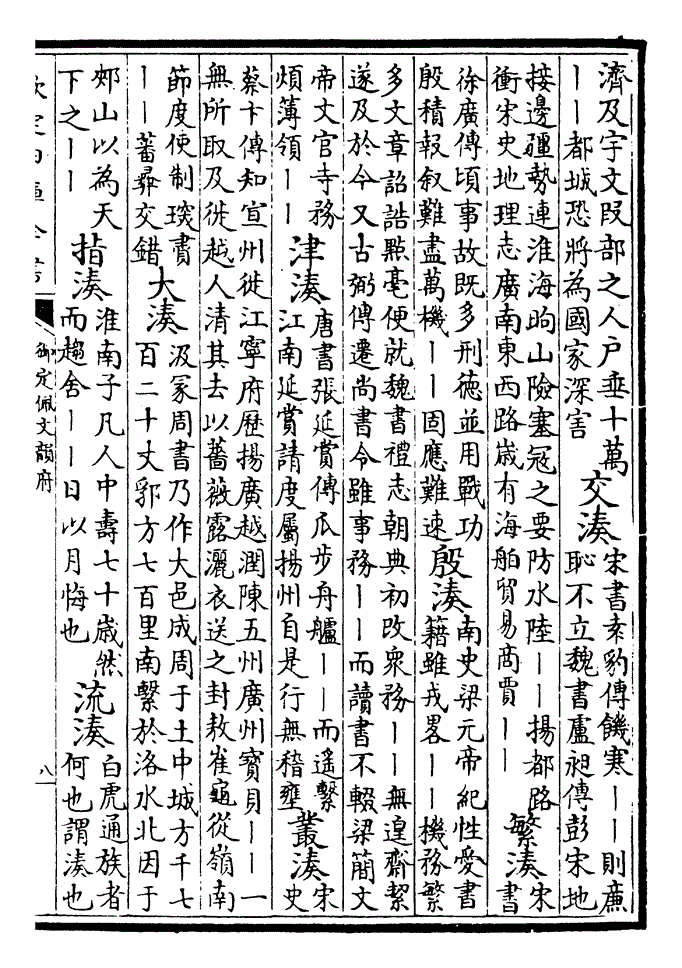 濟及宇文叚部之人户垂十萬
丨丨都城恐將為國家深害
交湊
宋書袁豹傳饑寒丨丨則㢘
恥不立魏書盧昶傳彭宋地
接邊疆勢連淮海朐山險塞冦之要防水陸丨丨揚都路
衝宋史地理志廣南東西路歲有海舶貿易商賈丨丨
繁湊
宋
書
徐廣傳頃事故既多刑徳並用戰功
殷積報叙難盡萬機丨丨固應難速
殷湊
南史梁元帝紀性愛書
籍雖戎畧丨丨機務繁
多文章詔誥㸃毫便就魏書禮志朝典初改衆務丨丨無遑齋潔
遂及於今又古弼傳遷尚書令雖事務丨丨而讀書不輟梁簡文
帝文官寺務
煩簿領丨丨
津湊
唐書張延賞傳瓜步舟艫丨丨而遥繫
江南延賞請度屬揚州自是行無稽壅
叢湊
宋
史
蔡卞傳知宣州徙江寧府歴揚廣越潤陳五州廣州寶貝丨丨一
無所取及徙越人清其去以薔薇露灑衣送之封敖崔龜從嶺南
節度使制琛賮
丨丨蕃彛交錯
大湊
汲冢周書乃作大邑成周于土中城方千七
百二十丈郛方七百里南繫於洛水北因于
郟山以為天
下之丨丨
指湊
淮南子凡人中壽七十歲然
而趨舍丨丨日以月悔也
流湊
白虎通族者
何也謂湊也
欽定四庫全書
御定佩文韻府
八